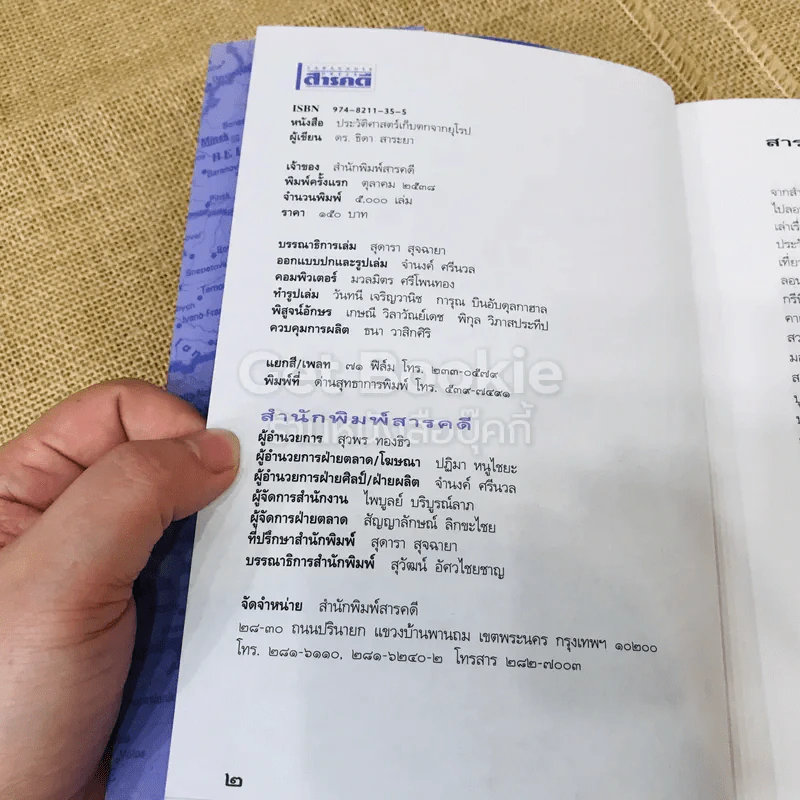 สารคดี
ISBN 974-8211-35-5
หนังสือ ประวัติศาสตร์เก็บตกจากยุโรป
ผู้เขียน ดร. ธิดา สาระยา
เจ้าของ สำนักพิมพ์สารคดี
พิมพ์ครั้งแรก ตุลาคม ๒๕๓๘
จำนวนพิมพ์ ๕,๐๐๐ เล่ม
ราคา ๑๕๐ บาท
บรรณาธิการเล่ม สุดารา สุจฉายา
ออกแบบปกและรูปเล่ม จำนงค์ ศรีนวล
คอมพิวเตอร์ มวลมิตร ศรีโพนทอง
ทำรูปเล่ม วันทนี เจริญวานิช การุณ บินอับดุลกาฮาล
พิสูจน์อักษร เกษณี วิลาวัณย์เดช พิกุล วิภาสประทีป
ควบคุมการผลิต ธนา วาสิกศิริ
แยกสี/เพลท ๗๑ ฟิล์ม โทร. ๒๓๓-๐๕๗๙
พิมพ์ที่ ด่านสุทธาการพิมพ์ โทร. ๕๓๙-๗๔๙๑
Get Bookie
ร้านหนังสือบุ๊คกี้
สำนักพิมพ์สารคดี
ผู้อำนวยการ สุวพร ทองธิว
ผู้อำนวยการฝ่ายตลาด/โฆษณา ปฏิมา หนูไชยะ
ผู้อำนวยการฝ่ายศิลป์/ฝ่ายผลิต จำนงค์ ศรีนวล
ผู้จัดการสำนักงาน ไพบูลย์ บริบูรณ์ลาภ
ผู้จัดการฝ่ายตลาด สัญญาลักษณ์ ลิกขะไชย
ที่ปรึกษาสำนักพิมพ์ สุดารา สุจฉายา
บรรณาธิการสำนักพิมพ์ สุวัฒน์ อัศวไชยชาญ
จัดจำหน่าย สำนักพิมพ์สารคดี
๒๘-๓๐ ถนนปรินายก แขวงบ้านพานถม เขตพระนคร กรุงเทพฯ ๑๐๒๐๐
โทร. ๒๘๑-๖๑๑๐, ๒๘๑-๖๒๔๐-๒ โทรสาร ๒๘๒-๗๐๐๓
๒